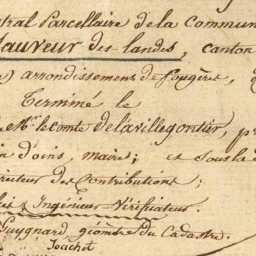 tral Parcellaire de la Commun
Sauveur des landes, canton
arondissement de fougères,
Terminé le
Mr. le comte de la villegontier, p
d'oins, maire; et sous la d
recteur des Contributions;
Ingénieur-Vérificateur.
Guygnard, géomètre du Cadastre.
Jouchet